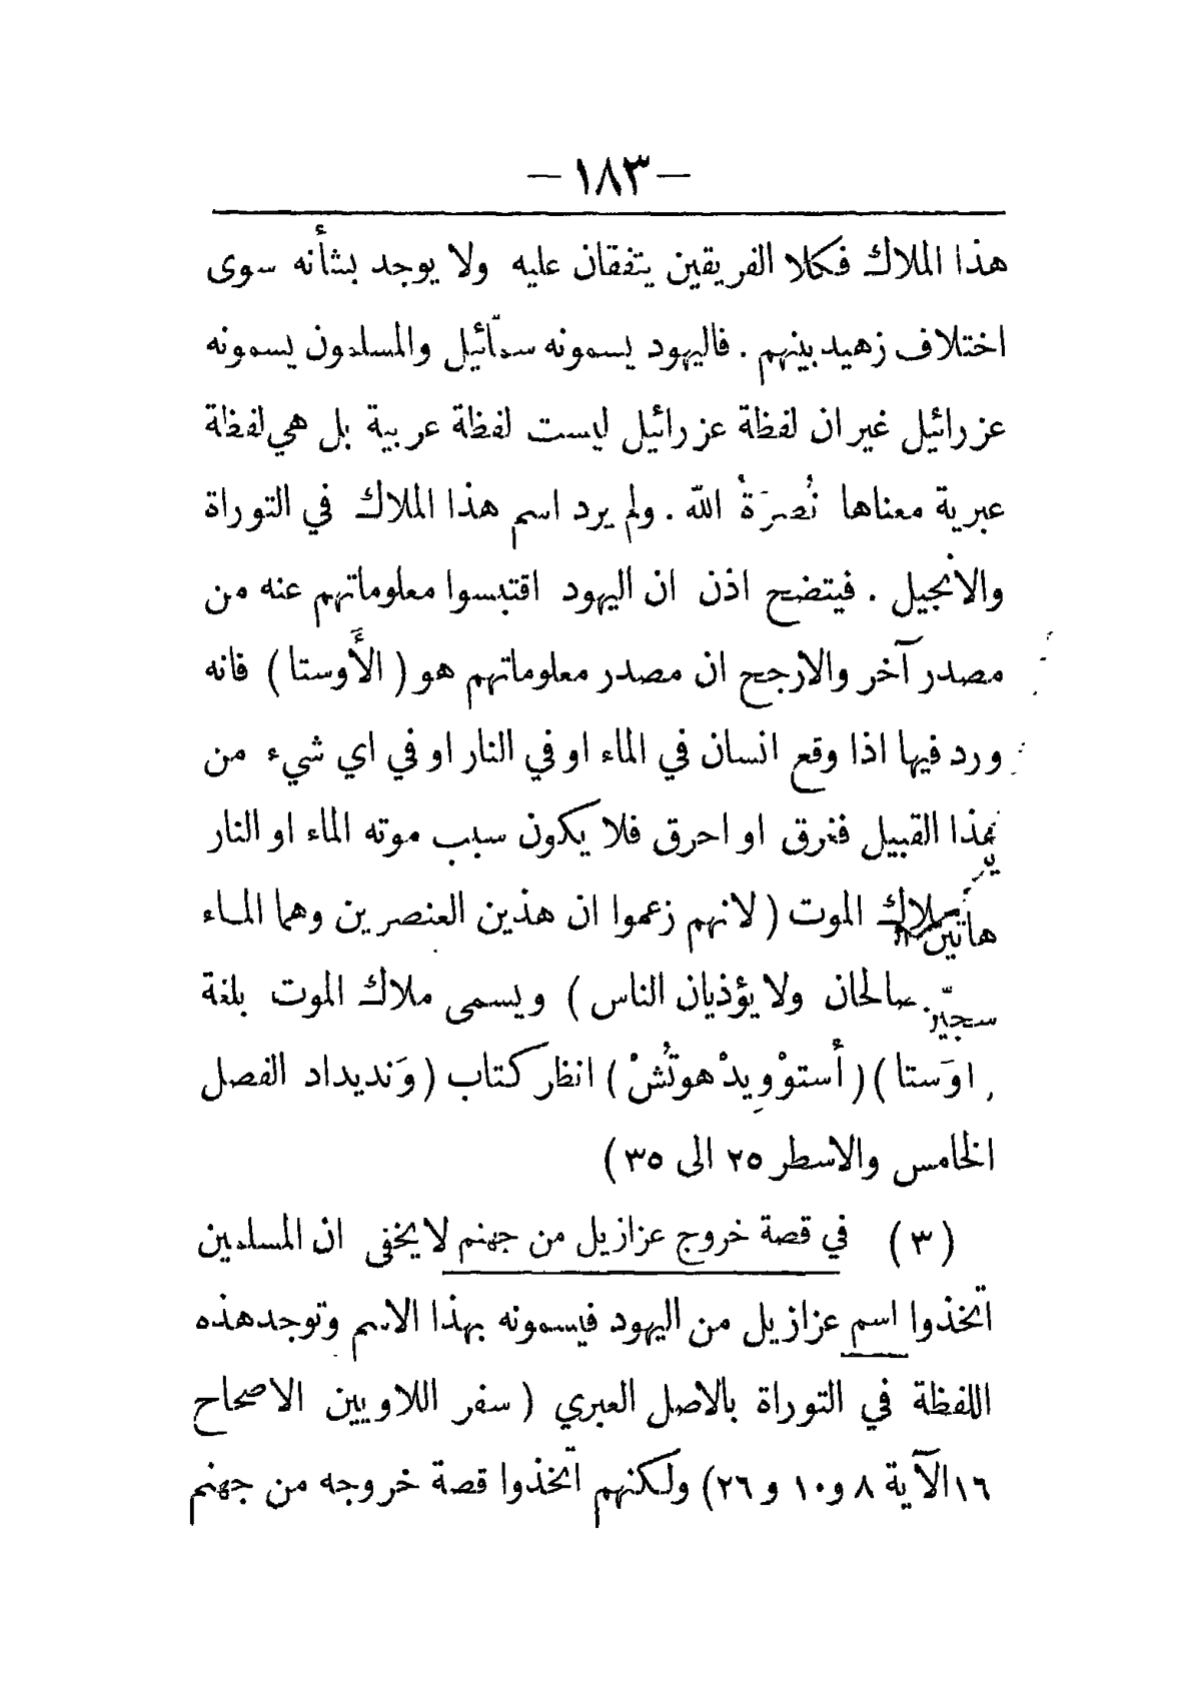 — ١٨٣ —
هذا الملاك فكلا الفريقين يتفقان عليه ولا يوجد بشأنه سوى
اختلاف زهيد بينهم . فاليهود يسمونه سمّائيل والمسلمون يسمونه
عزرائيل غير ان لفظة عزرائيل ليست لفظة عربية بل هي لفظة
عبرية معناها نُصرَةُ الله . ولم يرد اسم هذا الملاك في التوراة
والانجيل . فيتضح اذن ان اليهود اقتبسوا معلوماتهم عنه من
مصدر آخر والارجح ان مصدر معلوماتهم هو ( الأَوستا ) فانه
ورد فيها اذا وقع انسان في الماء او في النار او في اي شيء من
هذا القبيل فغرق او احرق فلا يكون سبب موته الماء او النار
ملاك الموت ( لانهم زعموا ان هذين العنصرين وهما الماء
هاتين
صالحان ولا يؤذيان الناس ) ويسمى ملاك الموت بلغة
اوَستا ) ( أُستوْوِيدْهوتُشْ ) انظر كتاب ( وَنديداد الفصل
الخامس والاسطر ٢٥ الى ٣٥ )
( ٣ ) في قصة خروج عزازيل من جهنم لا يخفى ان المسلمين
اتخذوا اسم عزازيل من اليهود فيسمونه بهذا الاسم وتوجد هذه
اللفظة في التوراة بالاصل العبري ( سفر اللاويين الاصحاح
١٦ الآية ٨ و١٠ و ٢٦ ) ولكنهم اتخذوا قصة خروجه من جهنم